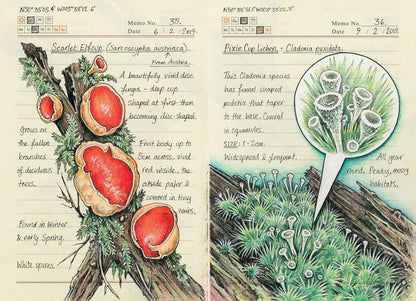 N50°35'25.4" W003°32'12.6"
Memo No. 35.
Date 6 / 2 / 2019.
Scarlet Elfcup (Sarcoscypha austriaca).
From Austria.
A beautifully vivid disc
fungus - deep cup
shaped at first then
becoming disc-shaped.
Grows on
the fallen
branches
of deciduous
trees.
Fruit body up to
5cm across, vivid
red inside, the
outside paler &
covered in tiny
hairs.
Found in Winter
& early Spring.
White spores.
Memo No. 36.
Date 9 / 2 / 2019.
Pixie Cup Lichen, - Cladonia pyxidata.
This Cladonia species
has funnel shaped
podetia that taper
to the base. Covered
in squamules.
SIZE: 1-2cm.
Widespread & frequent.
All year
round. Peaty, mossy
habitats.